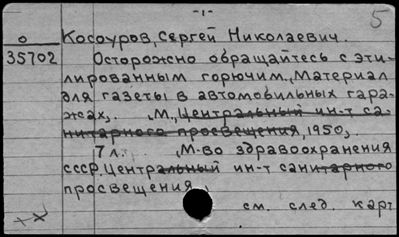 -1-
5
о
35702
Косоуров, Сергей Николаевич.
Осторожно обращайтесь с эти-
лированным горючим. Материал
для газеты в автомобильных гара-
жах,. М., Центральный ин-т са-
нитарного просвещения, 1950,.
7 л. М-во здравоохранения
СССР. Центральный ин-т санитарного
просвещения
см. след. карт